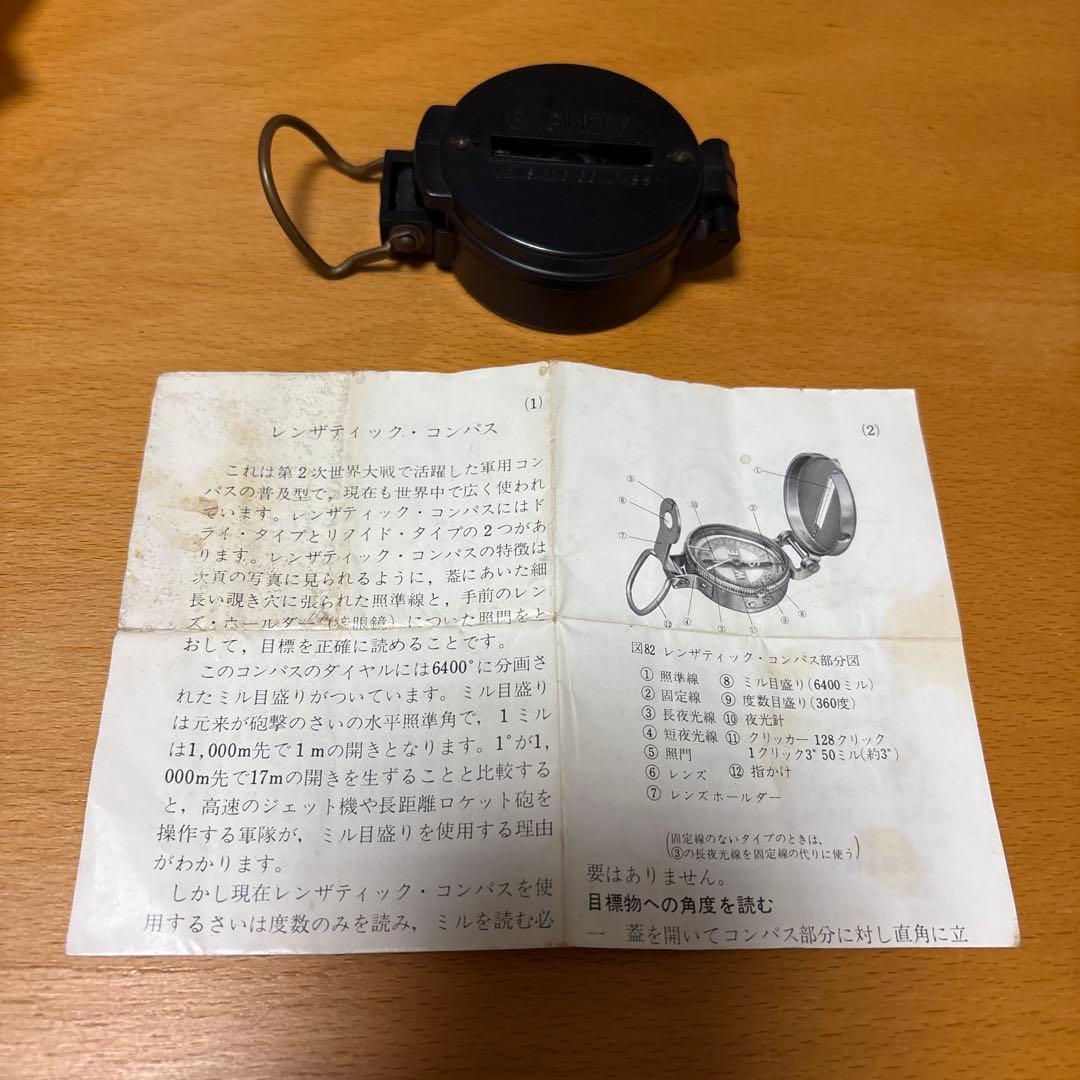 ENGINEER
LENSATIC COMPASS
(1)
レンザティック・コンパス
これは第2次世界大戦で活躍した軍用コン
パスの普及型で，現在も世界中で広く使われ
ています。レンザティック・コンパスにはド
ライ・タイプとリクイド・タイプの2つがあ
ります。レンザティック・コンパスの特徴は
次頁の写真に見られるように，蓋にあいた細
長い覗き穴に張られた照準線と，手前のレン
ズ・ホールダー（接眼鏡）についた照門をと
おして，目標を正確に読めることです。
このコンパスのダイヤルには6400°に分画さ
れたミル目盛りがついています。ミル目盛り
は元来が砲撃のさいの水平照準角で，1ミル
は1,000m先で1mの開きとなります。1°が1,
000m先で17mの開きを生ずることと比較する
と，高速のジェット機や長距離ロケット砲を
操作する軍隊が，ミル目盛りを使用する理由
がわかります。
しかし現在レンザティック・コンパスを使
用するさいは度数のみを読み，ミルを読む必
(2)
① ② ③ ④ ⑤ ⑥ ⑦ ⑧ ⑨ ⑩ ⑪ ⑫
図82 レンザティック・コンパス部分図
① 照準線 ⑧ ミル目盛り(6400ミル)
② 固定線 ⑨ 度数目盛り(360度)
③ 長夜光線 ⑩ 夜光針
④ 短夜光線 ⑪ クリッカー 128クリック
⑤ 照門 1クリック3°50ミル(約3°)
⑥ レンズ ⑫ 指かけ
⑦ レンズホールダー
(固定線のないタイプのときは，
③の長夜光線を固定線の代りに使う)
要はありません。
目標物への角度を読む
一 蓋を開いてコンパス部分に対し直角に立